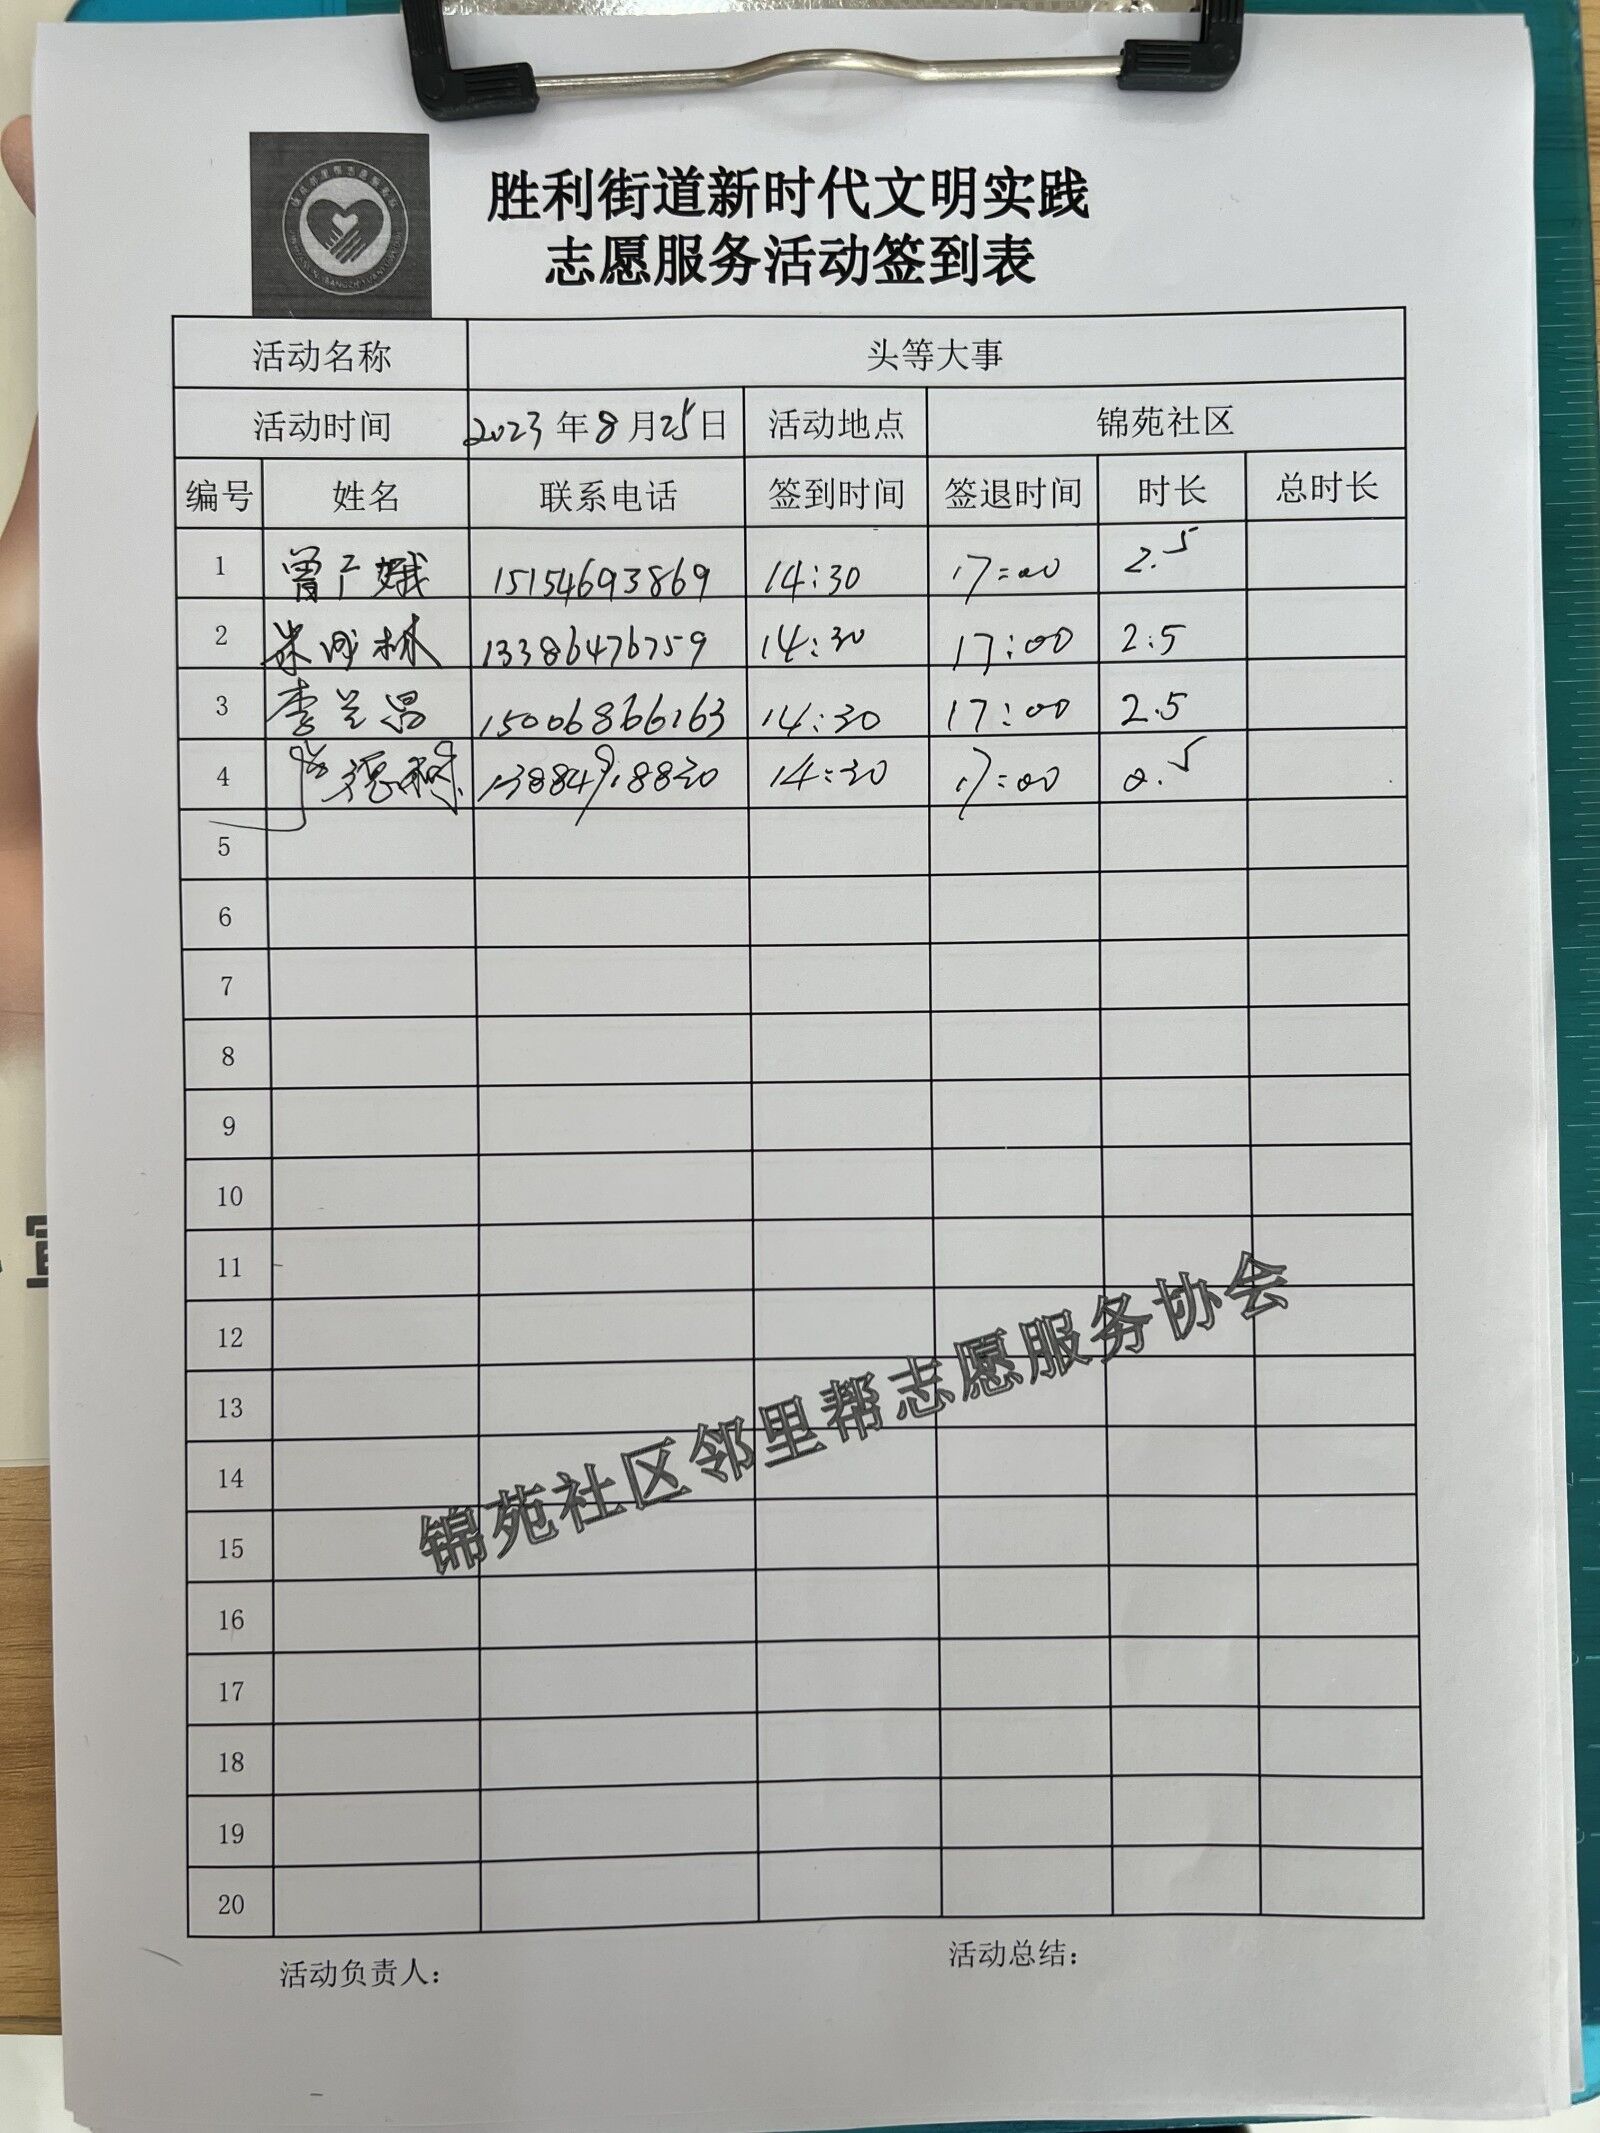 胜利街道新时代文明实践
志愿服务活动签到表
活动名称 头等大事
活动时间 2023年8月25日 活动地点 锦苑社区
编号 姓名 联系电话 签到时间 签退时间 时长 总时长
1 曾广娥 15154693869 14:30 17:00 2.5
2 林 13386476759 14:30 17:00 2.5
3 李兰昌 15006866163 14:30 17:00 2.5
4 德 13884918830 14:30 17:00 2.5
5
6
7
8
9
10
11
12
13
14
15
16
17
18
19
20
锦苑社区邻里帮志愿服务协会
活动负责人: 活动总结: